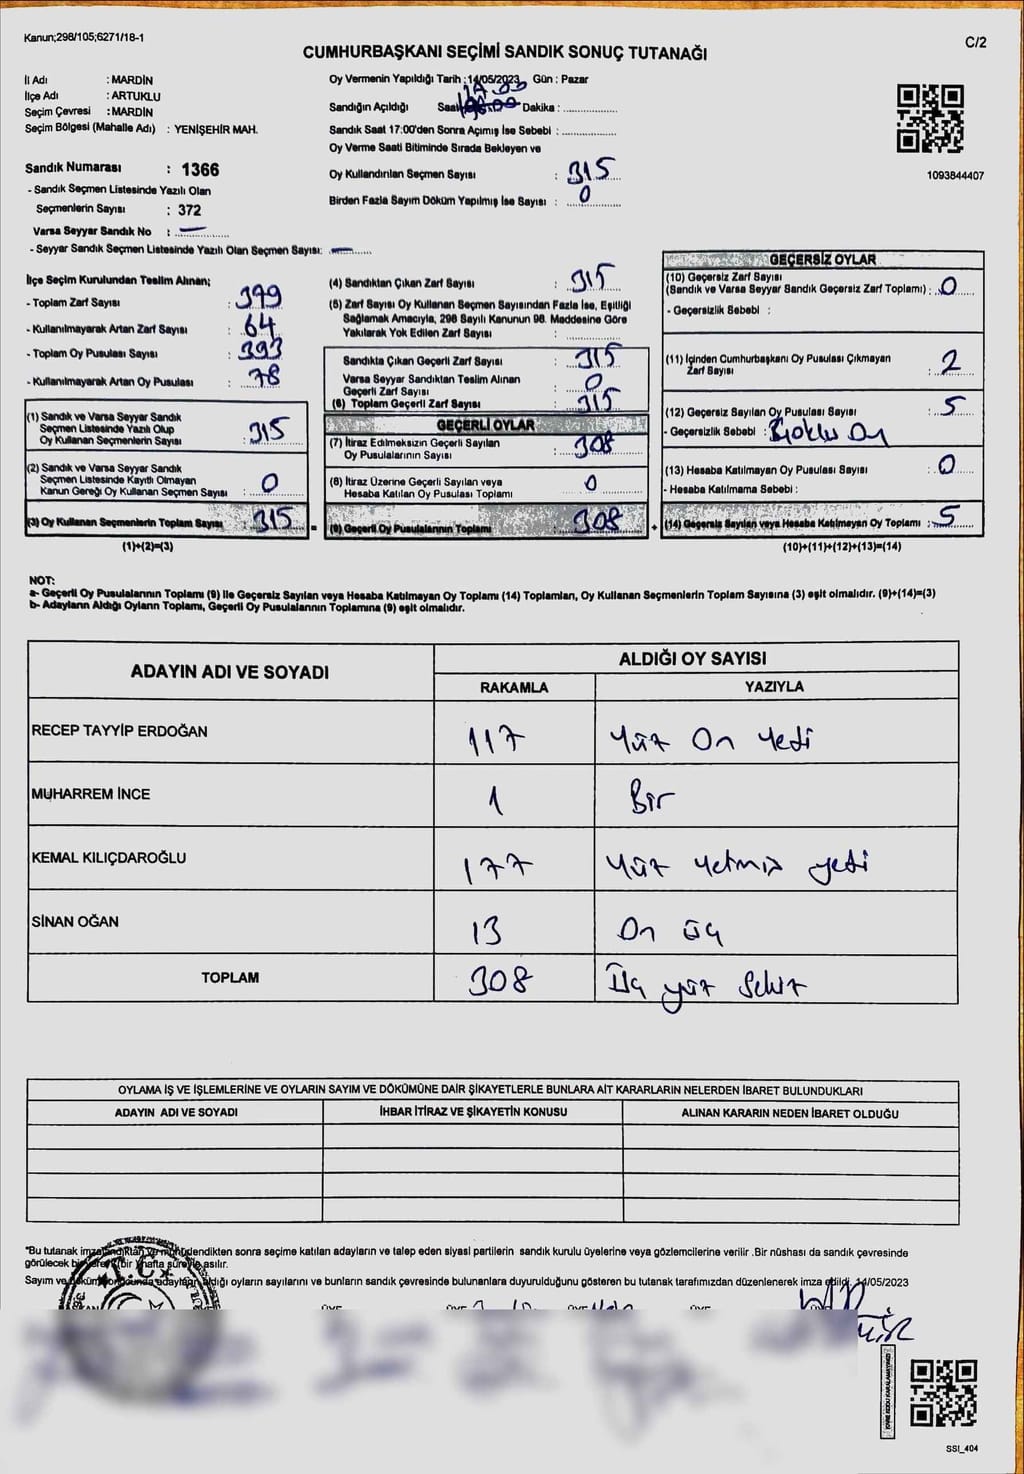 Kanun;298/105;6271/18-1
C/2
CUMHURBAŞKANI SEÇİMİ SANDIK SONUÇ TUTANAĞI
İl Adı : MARDİN
İlçe Adı : ARTUKLU
Seçim Çevresi : MARDİN
Seçim Bölgesi (Mahalle Adı) : YENİŞEHİR MAH.
Sandık Numarası : 1366
- Sandık Seçmen Listesinde Yazılı Olan
Seçmenlerin Sayısı : 372
Varsa Seyyar Sandık No : —
- Seyyar Sandık Seçmen Listesinde Yazılı Olan Seçmen Sayısı: —
Oy Vermenin Yapıldığı Tarih : 14/05/2023 Gün : Pazar
Sandığın Açıldığı Saat Dakika :
Sandık Saat 17:00'den Sonra Açımış İse Sebebi :
Oy Verme Saati Bitiminde Sırada Bekleyen ve
Oy Kullandırılan Seçmen Sayısı : 315
Birden Fazla Sayım Döküm Yapılmış İse Sayısı : 0
1093844407
İlçe Seçim Kurulundan Teslim Alınan;
- Toplam Zarf Sayısı : 379
- Kullanılmayarak Artan Zarf Sayısı : 64
- Toplam Oy Pusulası Sayısı : 393
- Kullanılmayarak Artan Oy Pusulası : 78
(1) Sandık ve Varsa Seyyar Sandık
Seçmen Listesinde Yazılı Olup
Oy Kullanan Seçmenlerin Sayısı : 315
(2) Sandık ve Varsa Seyyar Sandık
Seçmen Listesinde Kayıtlı Olmayan
Kanun Gereği Oy Kullanan Seçmen Sayısı : 0
(3) Oy Kullanan Seçmenlerin Toplam Sayısı : 315
(1)+(2)=(3)
(4) Sandıktan Çıkan Zarf Sayısı : 315
(5) Zarf Sayısı Oy Kullanan Seçmen Sayısından Fazla İse, Eşitliği
Sağlamak Amacıyla, 298 Sayılı Kanunun 98. Maddesine Göre
Yakılarak Yok Edilen Zarf Sayısı :
Sandıkta Çıkan Geçerli Zarf Sayısı : 315
Varsa Seyyar Sandıktan Teslim Alınan
Geçerli Zarf Sayısı : 0
(6) Toplam Geçerli Zarf Sayısı : 315
GEÇERLİ OYLAR
(7) İtiraz Edilmeksizin Geçerli Sayılan
Oy Pusulalarının Sayısı : 308
(8) İtiraz Üzerine Geçerli Sayılan veya
Hesaba Katılan Oy Pusulası Toplamı : 0
(9) Geçerli Oy Pusulalarının Toplamı : 308
GEÇERSİZ OYLAR
(10) Geçersiz Zarf Sayısı
(Sandık ve Varsa Seyyar Sandık Geçersiz Zarf Toplamı) : 0
- Geçersizlik Sebebi :
(11) İçinden Cumhurbaşkanı Oy Pusulası Çıkmayan
Zarf Sayısı : 2
(12) Geçersiz Sayılan Oy Pusulası Sayısı : 5
- Geçersizlik Sebebi : Çoklu Oy
(13) Hesaba Katılmayan Oy Pusulası Sayısı : 0
- Hesaba Katılmama Sebebi :
(14) Geçersiz Sayılan veya Hesaba Katılmayan Oy Toplamı : 5
(10)+(11)+(12)+(13)=(14)
NOT:
a- Geçerli Oy Pusulalarının Toplamı (9) ile Geçersiz Sayılan veya Hesaba Katılmayan Oy Toplamı (14) Toplamları, Oy Kullanan Seçmenlerin Toplam Sayısına (3) eşit olmalıdır. (9)+(14)=(3)
b- Adayların Aldığı Oyların Toplamı, Geçerli Oy Pusulalarının Toplamına (9) eşit olmalıdır.
ADAYIN ADI VE SOYADI
ALDIĞI OY SAYISI
RAKAMLA YAZIYLA
RECEP TAYYİP ERDOĞAN 117 Yüz On Yedi
MUHARREM İNCE 1 Bir
KEMAL KILIÇDAROĞLU 177 Yüz Yetmiş yedi
SİNAN OĞAN 13 On üç
TOPLAM 308 Üç yüz Sekiz
OYLAMA İŞ VE İŞLEMLERİNE VE OYLARIN SAYIM VE DÖKÜMÜNE DAİR ŞİKAYETLERLE BUNLARA AİT KARARLARIN NELERDEN İBARET BULUNDUKLARI
ADAYIN ADI VE SOYADI İHBAR İTİRAZ VE ŞİKAYETİN KONUSU ALINAN KARARIN NEDEN İBARET OLDUĞU
"Bu tutanak imzalandıktan ve mühürlendikten sonra seçime katılan adayların ve talep eden siyasi partilerin sandık kurulu üyelerine veya gözlemcilerine verilir .Bir nüshası da sandık çevresinde
görülecek bir yere (bir) hafta süreyle asılır.
Sayım ve dökümü sonunda adayların aldığı oyların sayılarını ve bunların sandık çevresinde bulunanlara duyurulduğunu gösteren bu tutanak tarafımızdan düzenlenerek imza edildi. 14/05/2023
T.C.
SSI_404